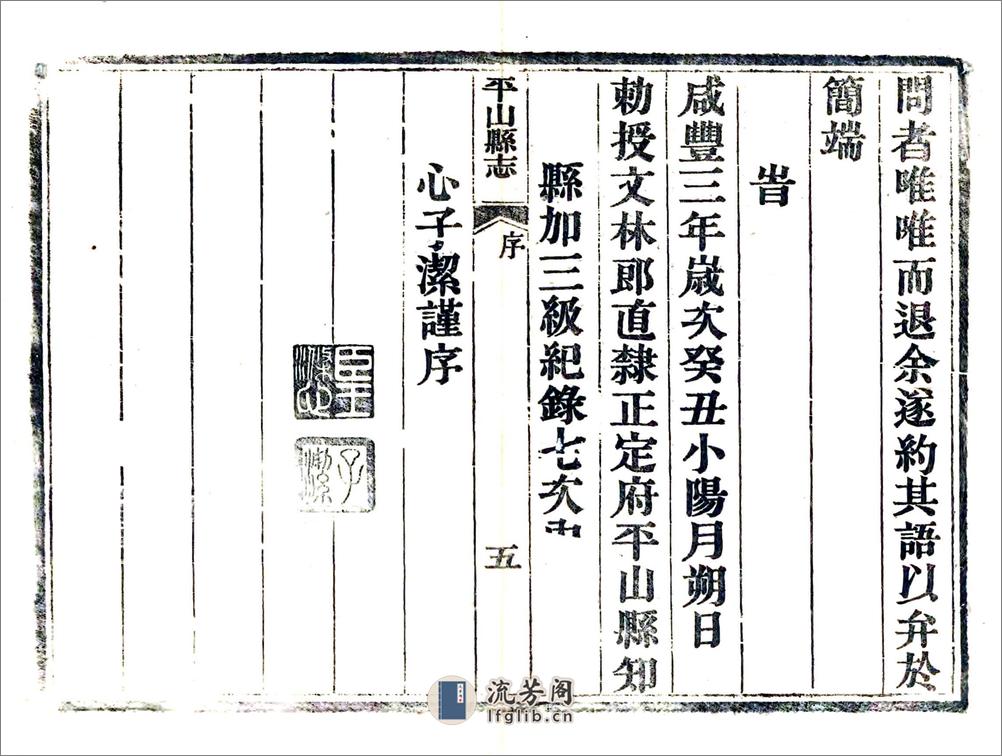 問者唯唯而退余遂約其語以弁於
簡端
旹
咸豐三年歲次癸丑小陽月朔日
勅授文林郎直隸正定府平山縣知
縣加三級紀錄七次
平山縣志 序 五
心子潔謹序
臣王滌心
子潔
流芳阁
lfglib.cn